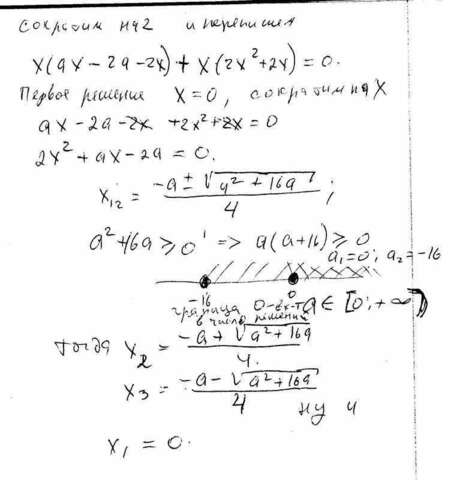 сократим на 2 и перепишем
x(ax - 2a - 2x) + x(2x² + 2x) = 0.
Первое решение x = 0, сократим на x
ax - 2a - 2x + 2x² + 2x = 0
2x² + ax - 2a = 0.
x₁₂ = (-a ± √(a² + 16a)) / 4 ;
a² + 16a ≥ 0 ' => a(a+16) ≥ 0
a₁ = 0; a₂ = -16
-16 0
граница 0 - вх-т a ∈ [0; +∞)
в число решений
тогда x₂ = (-a + √(a² + 16a)) / 4.
x₃ = (-a - √(a² + 16a)) / 4
ну и
x₁ = 0.